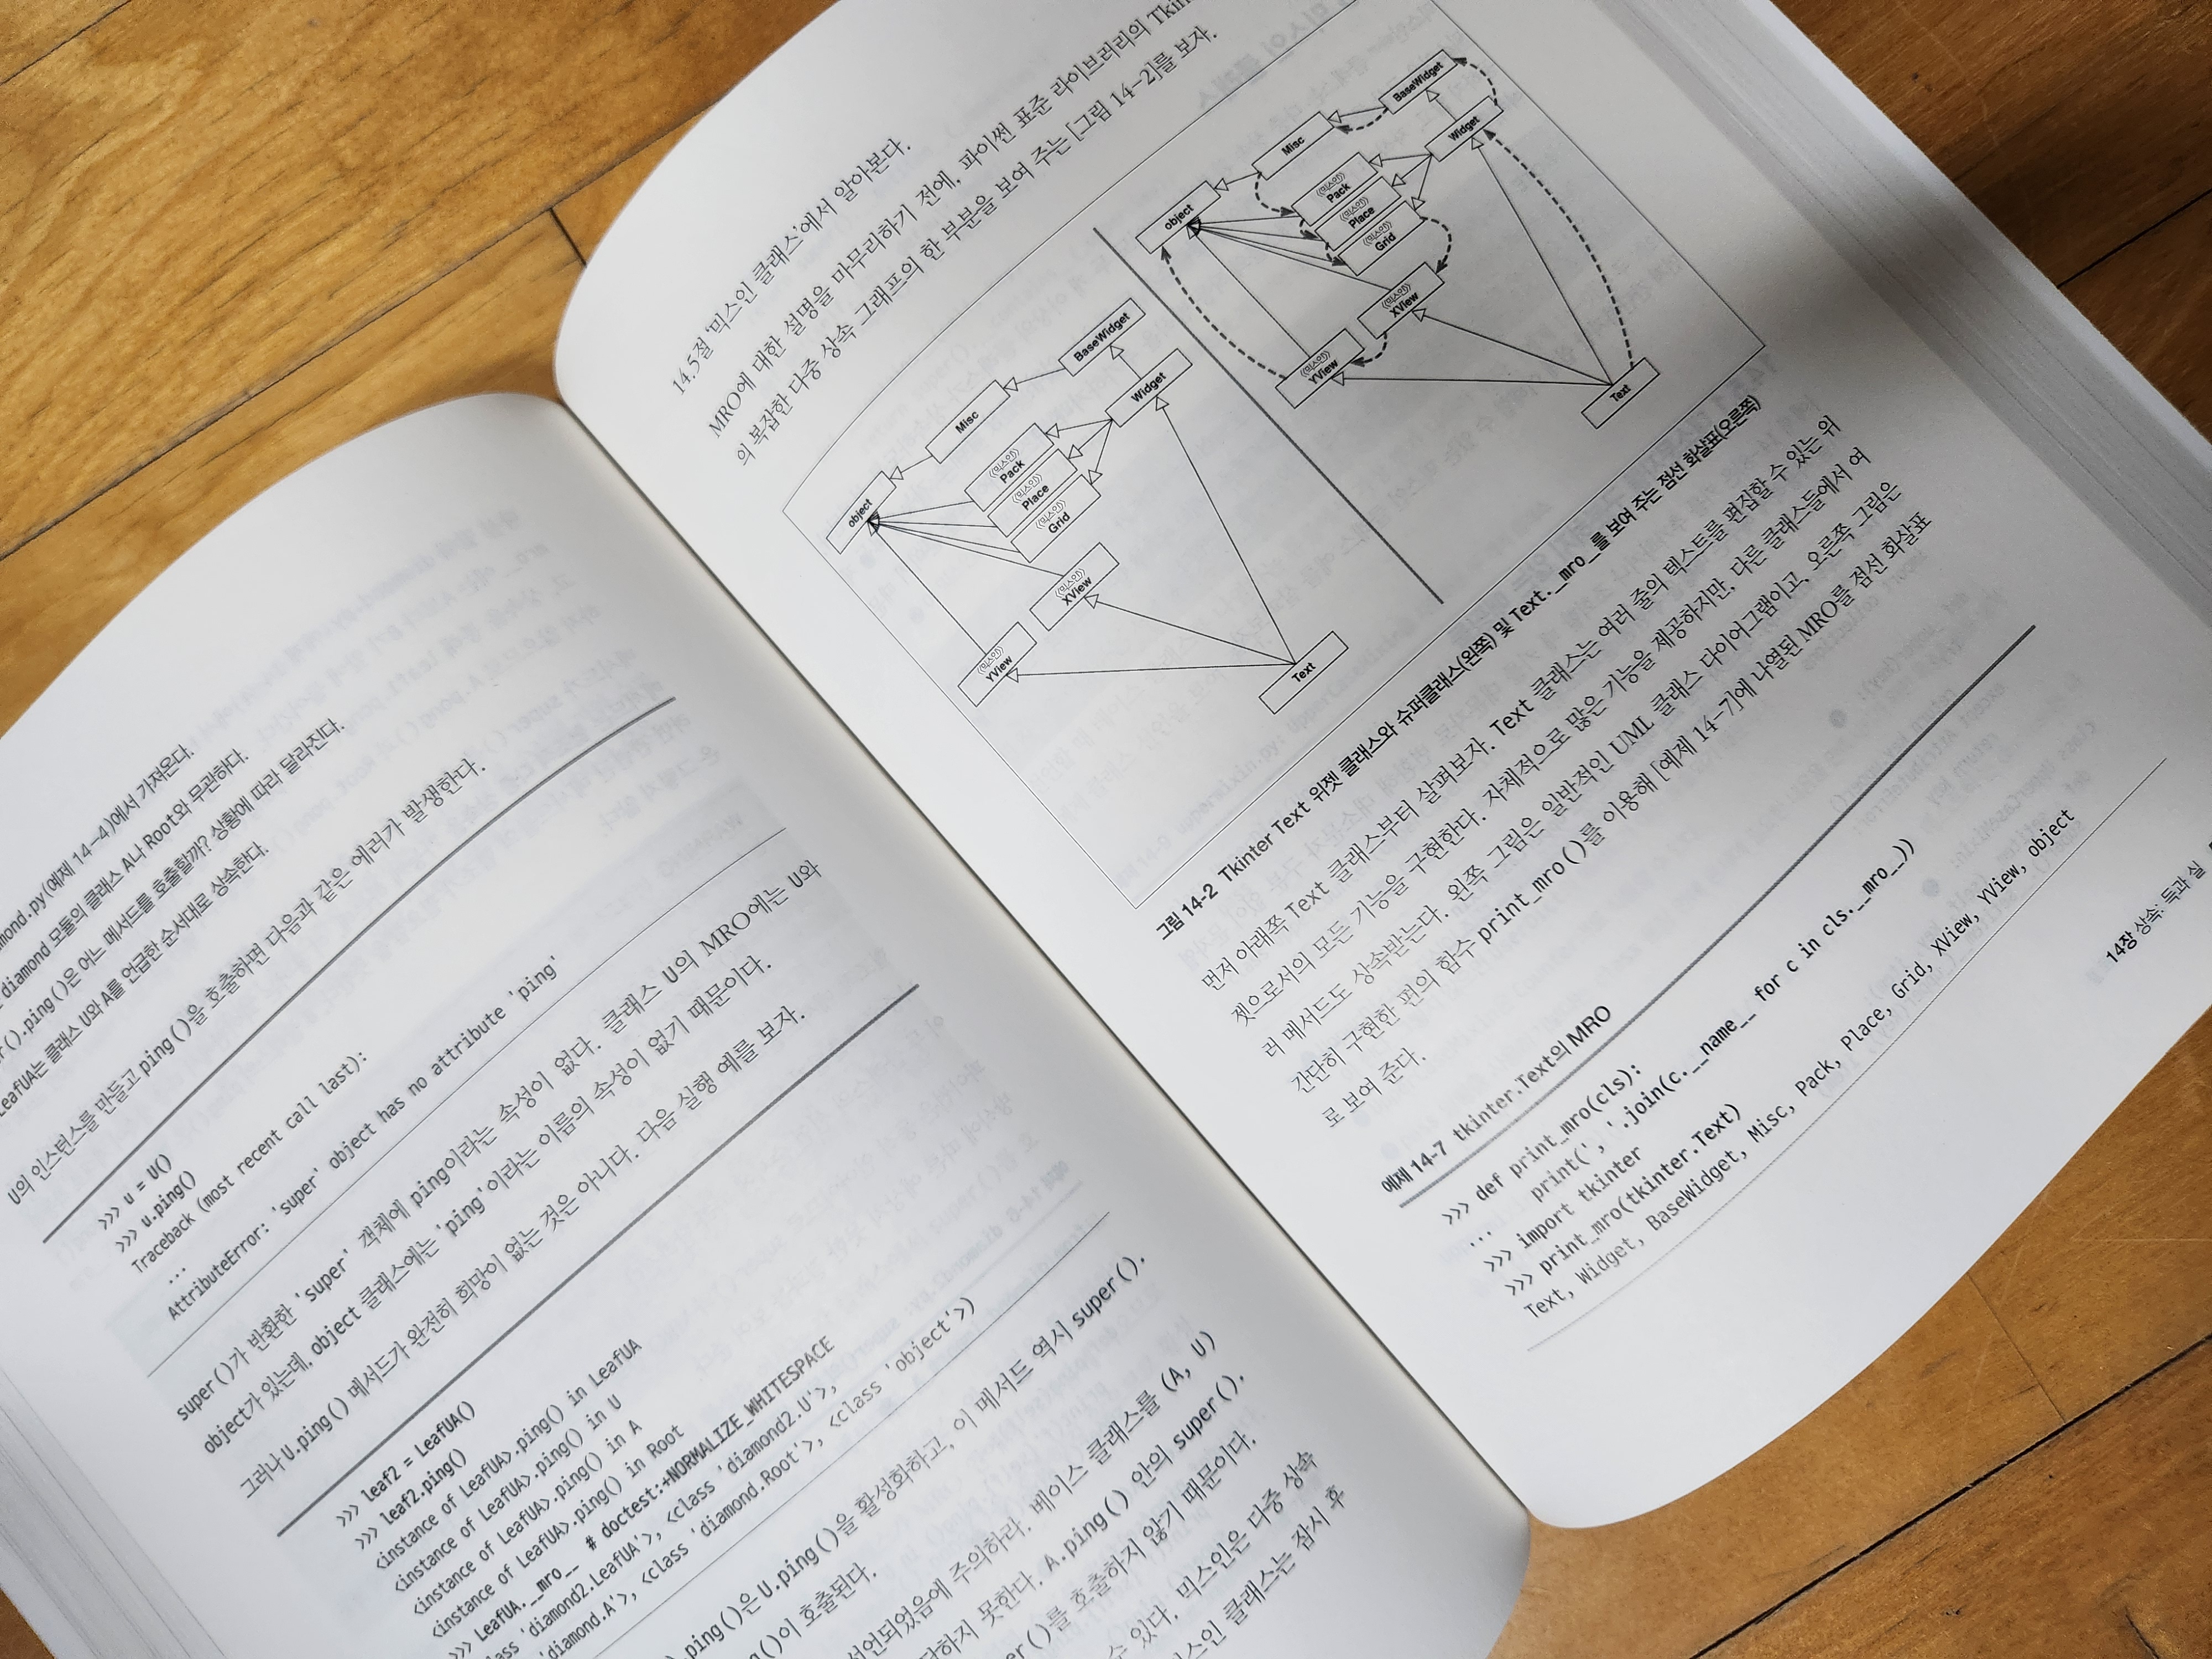 mond.py(예제 14-4)에서 가져온다.
diamond 모듈의 클래스 A나 Root와 무관하다.
r().ping()은 어느 메서드를 호출할까? 상황에 따라 달라진다.
LeafUA는 클래스 U와 A를 언급한 순서대로 상속한다.
U의 인스턴스를 만들고 ping()을 호출하면 다음과 같은 에러가 발생한다.
>>> u = U()
>>> u.ping()
Traceback (most recent call last):
...
AttributeError: 'super' object has no attribute 'ping'
super()가 반환한 'super' 객체에 ping이라는 속성이 없다. 클래스 U의 MRO에는 U와
object가 있는데, object 클래스에는 'ping'이라는 이름의 속성이 없기 때문이다.
그러나 U.ping() 메서드가 완전히 희망이 없는 것은 아니다. 다음 실행 예를 보자.
>>> leaf2 = LeafUA()
>>> leaf2.ping()
<instance of LeafUA>.ping() in LeafUA
<instance of LeafUA>.ping() in U
<instance of LeafUA>.ping() in A
<instance of LeafUA>.ping() in Root
>>> LeafUA.__mro__ # doctest:+NORMALIZE_WHITESPACE
lass 'diamond2.LeafUA'>, <class 'diamond2.U'>,
'diamond.A'>, <class 'diamond.Root'>, <class 'object'>)
.ping()은 U.ping()을 활성화하고, 이 메서드 역시 super().
g()이 호출된다.
선언되었음에 주의하라. 베이스 클래스를 (A, U)
단하지 못한다. A.ping() 안의 super().
er()를 호출하지 않기 때문이다.
수 있다. 믹스인은 다중 상속
스인 클래스는 잠시 후
14.5절 '믹스인 클래스'에서 알아본다.
MRO에 대한 설명을 마무리하기 전에, 파이썬 표준 라이브러리의 Tkin
의 복잡한 다중 상속 그래프의 한 부분을 보여 주는 [그림 14-2]를 보자.
object
Misc
BaseWidget
Widget
《믹스인》
Pack
《믹스인》
Place
《믹스인》
Grid
《믹스인》
XView
《믹스인》
YView
Text
object
Misc
BaseWidget
Widget
《믹스인》
Pack
《믹스인》
Place
《믹스인》
Grid
《믹스인》
XView
《믹스인》
YView
Text
그림 14-2 Tkinter Text 위젯 클래스와 슈퍼클래스(왼쪽) 및 Text.__mro__를 보여 주는 점선 화살표(오른쪽)
먼저 아래쪽 Text 클래스부터 살펴보자. Text 클래스는 여러 줄의 텍스트를 편집할 수 있는 위
젯으로서의 모든 기능을 구현한다. 자체적으로 많은 기능을 제공하지만, 다른 클래스들에서 여
러 메서드도 상속받는다. 왼쪽 그림은 일반적인 UML 클래스 다이어그램이고, 오른쪽 그림은
간단히 구현한 편의 함수 print_mro()를 이용해 [예제 14-7]에 나열된 MRO를 점선 화살표
로 보여 준다.
예제 14-7 tkinter.Text의 MRO
>>> def print_mro(cls):
... print(', '.join(c.__name__ for c in cls.__mro__))
>>> import tkinter
>>> print_mro(tkinter.Text)
Text, Widget, BaseWidget, Misc, Pack, Place, Grid, XView, YView, object
14장 상속: 득과 실